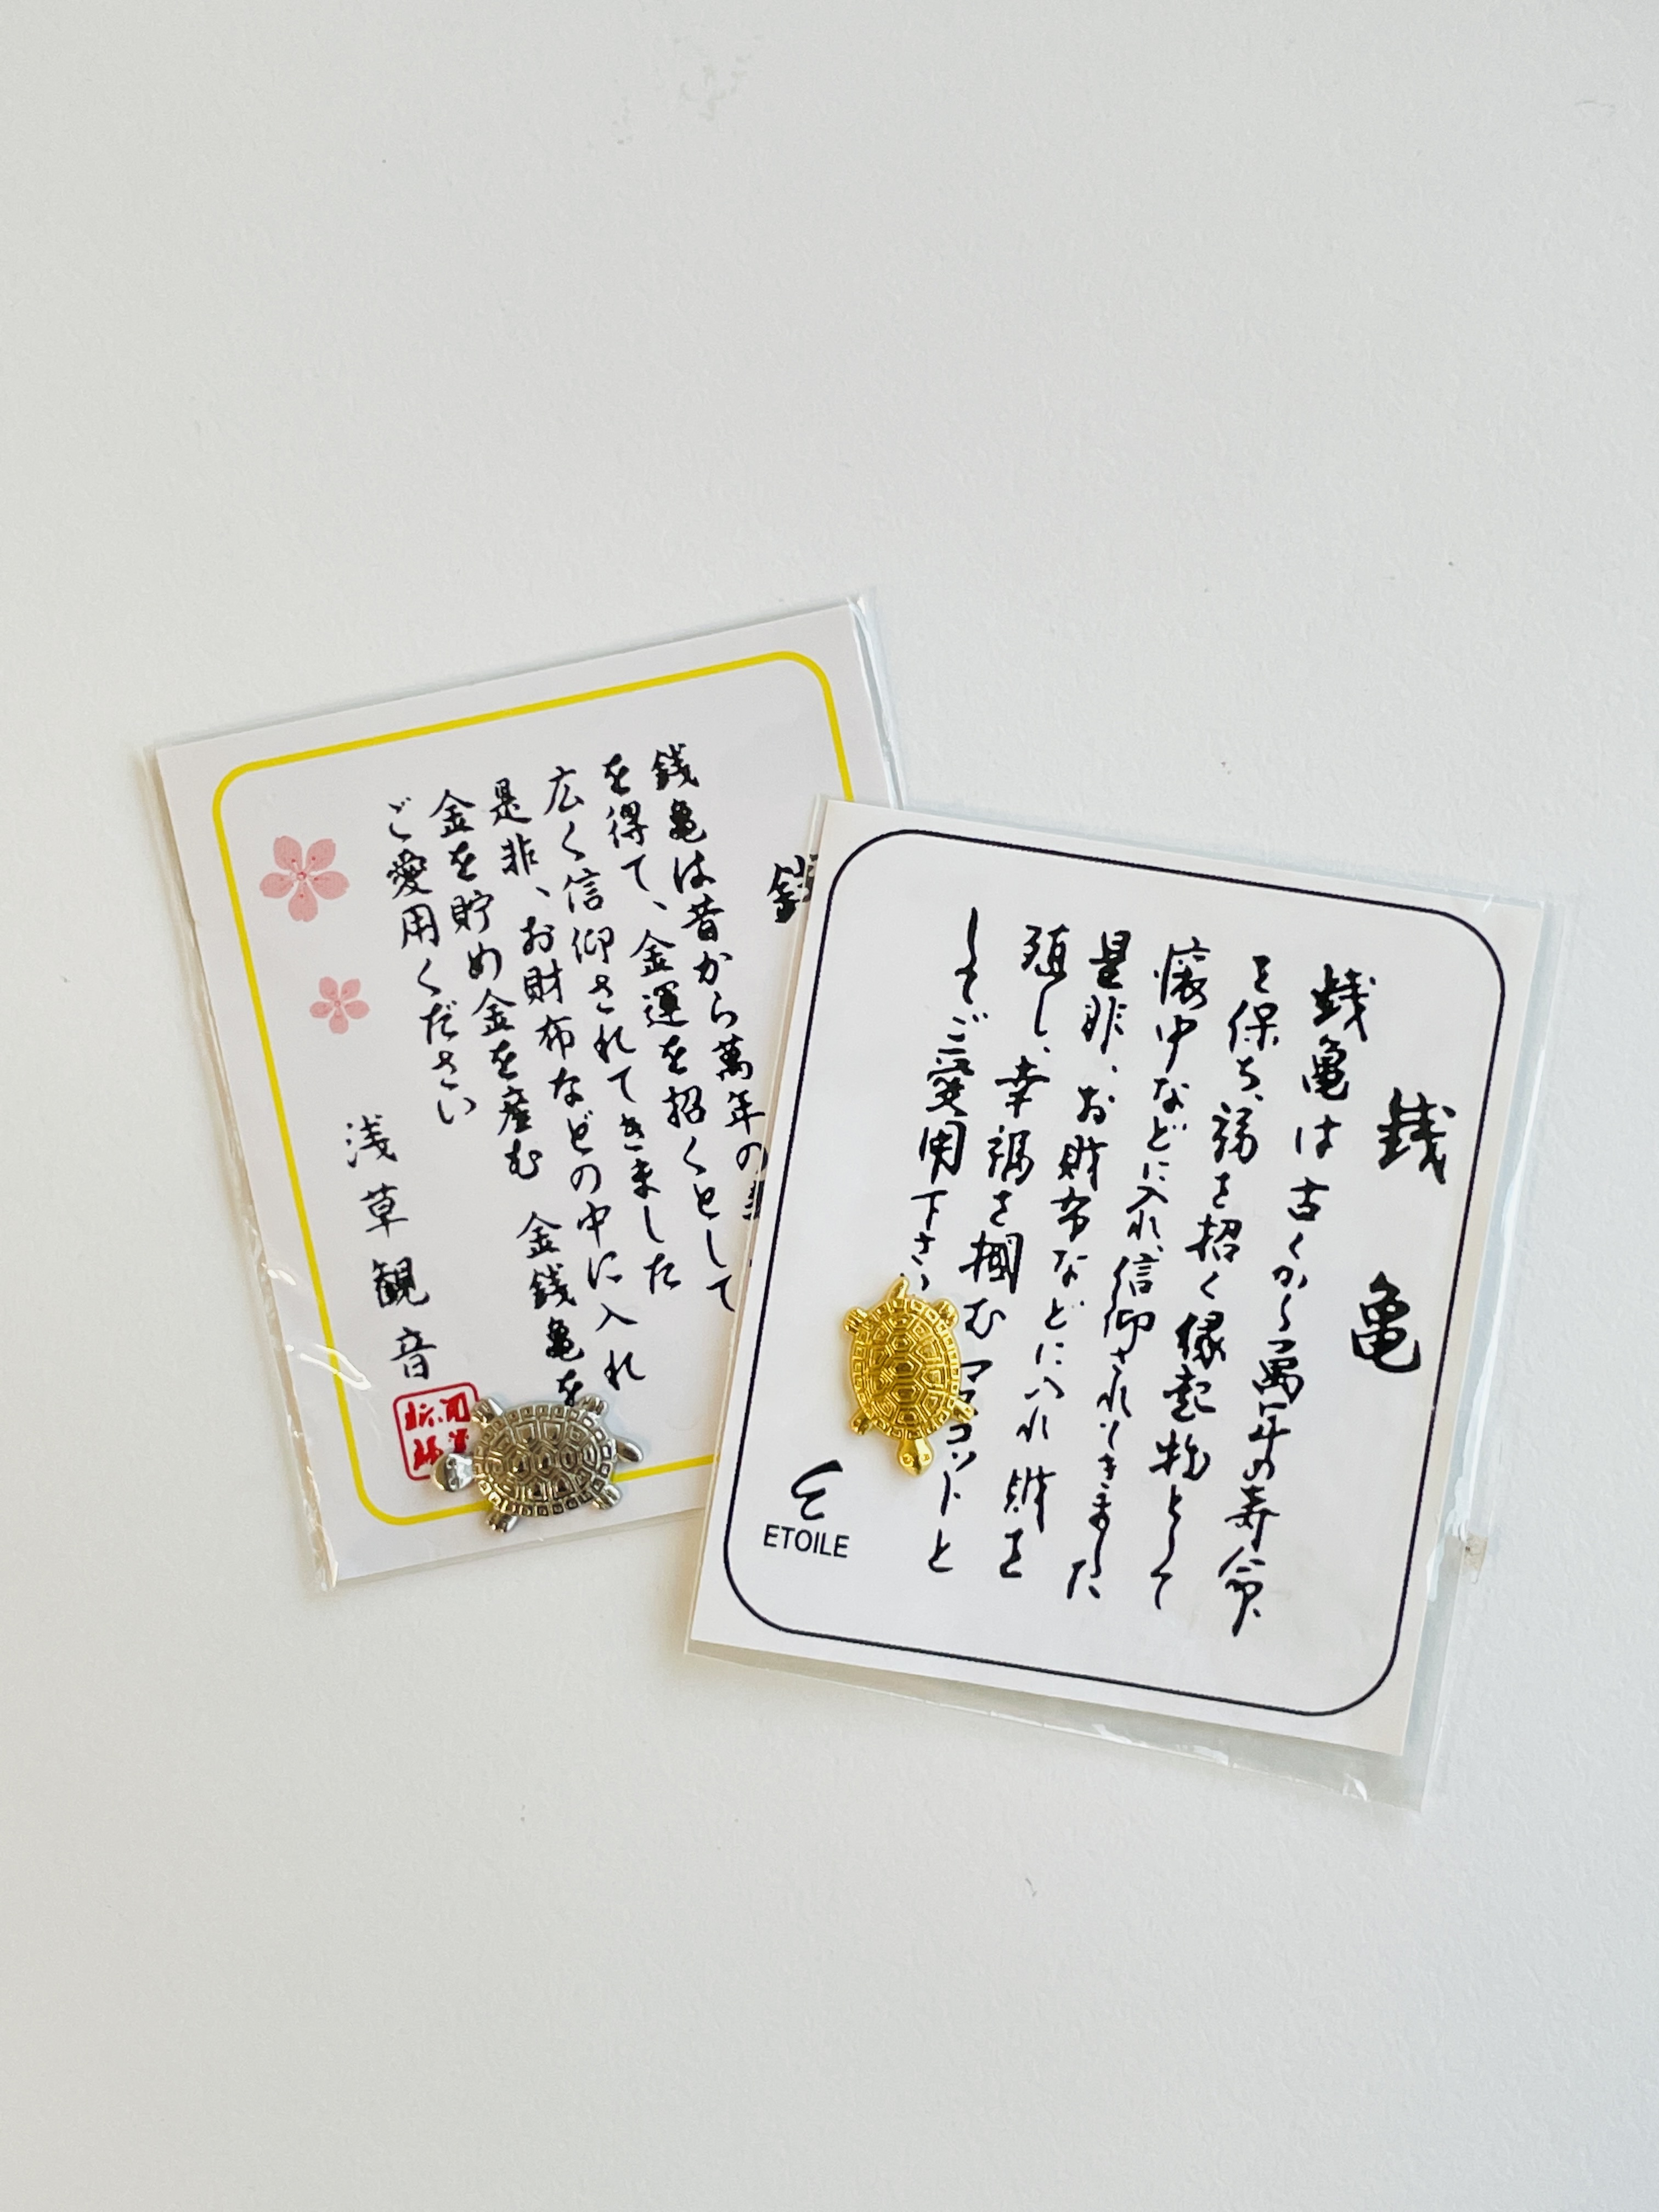 銭亀は昔から萬年の
を得て、金運を招くとして
広く信仰されてきました
是非、お財布などの中に入れ
金を貯め金を産む 金銭亀を
ご愛用ください
浅草観音
銭亀
銭亀は古くから萬年の寿命
を保ち、福を招く縁起物として
懐中などに入れ、信仰されてきました
是非、お財布などに入れ財を
殖し、幸福を掴むマスコットと
してご愛用下さい
ETOILE